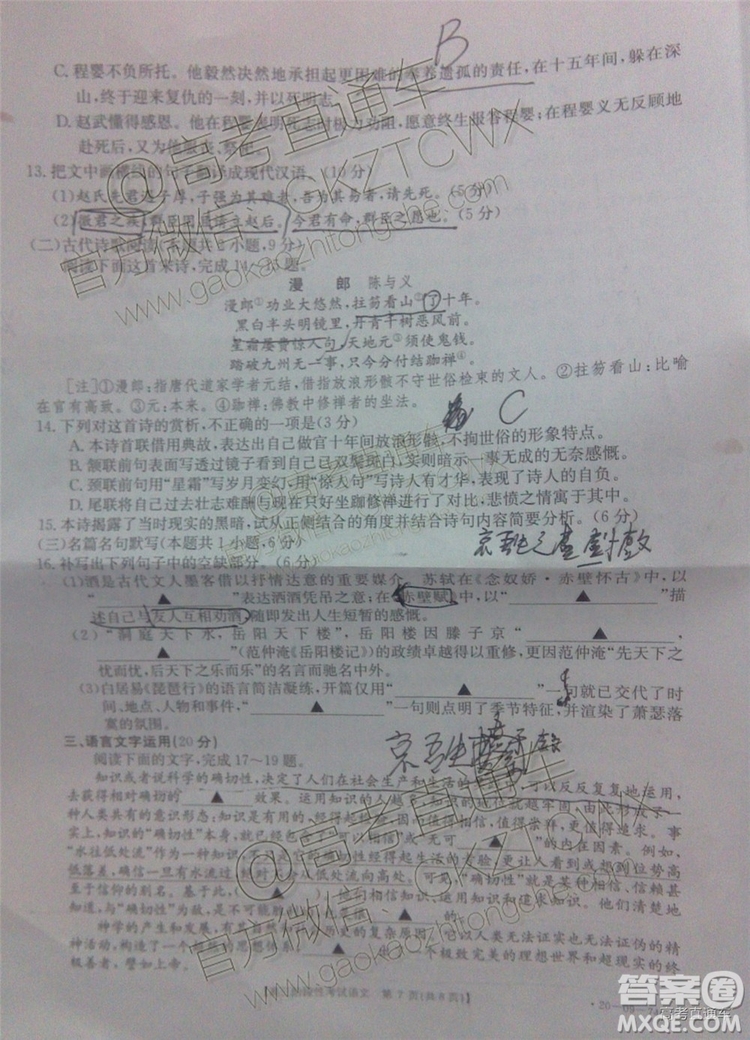 B
C. 程婴不负所托。他毅然决然地承担起更困难的奉养遗孤的责任,在十五年间,躲在深
山,终于迎来复仇的一刻,并以死明志。
D. 赵武懂得感恩。当程婴表明死志时极力劝阻,愿意终生报答程婴;在程婴义无反顾地
赴死后,又为他服丧
13. 把文中画横线的句子翻译成现代汉语。(10分)
(1)赵氏先君遇子厚,子强为其难者,吾为其易者,请先死。(5分)
(2)微君之疾,群臣固且请立赵后。今君有命,群臣之愿也。(5分)
(二)古代诗歌阅读(本题共2小题,9分)
阅读下面这首宋诗,完成14~15题。
漫 郎 陈与义
漫郎①功业大悠然,拄笏看山②了十年。
黑白半头明镜里,丹青千树恶风前。
星霜屡费惊人句,天地元③须使鬼钱。
踏破九州无一事,只今分付结跏禅④。
[注]①漫郎:指唐代道家学者元结,借指放浪形骸不守世俗检束的文人。②拄笏看山:比喻
在官有高致。③元:本来。④跏禅:佛教中修禅者的坐法。
C
14. 下列对这首诗的赏析,不正确的一项是(3分)
A. 本诗首联借用典故,表达出自己做官十年间放浪形骸、不拘世俗的形象特点。
B. 颔联前句表面写透过镜子看到自己双鬓斑白,实则暗示一事无成的无奈感慨。
C. 颈联前句用“星霜”写岁月变幻,用“惊人句”写诗人有才华,表现了诗人的自负。
D. 尾联将自己过去壮志难酬与现在只好坐跏修禅进行了对比,悲愤之情贯穿其中。
15. 本诗揭露了当时现实的黑暗,试从正侧结合的角度并结合诗句内容简要分析。(6分)
(三)名篇名句默写(本题共1小题,6分)
16. 补写出下列句子中的空缺部分。(6分)
(1)酒是古代文人墨客借以抒情达意的重要媒介。苏轼在《念奴娇·赤壁怀古》中,以
“▲”表达洒酒凭吊之意;在《赤壁赋》中,以“▲”描
述自己与友人互相劝酒,随即发出人生短暂的感慨。
(2)“洞庭天下水,岳阳天下楼”,岳阳楼因滕子京“▲,
▲”(范仲淹《岳阳楼记》)的政绩卓越得以重修,更因范仲淹“先天下之
忧而忧,后天下之乐而乐”的名言而驰名中外。
(3)白居易《琵琶行》的语言简洁凝练,开篇仅用“▲”一句就已交代了时
间、地点、人物和事件,“▲”一句则点明了季节特征,并渲染了萧瑟落
寞的氛围。
三、语言文字运用(20分)
阅读下面的文字,完成17~19题。
知识或者说科学的确切性,决定了人们在社会生产和生活的 可以反反复复地运用,
去获得相对确切的▲效果。运用知识的人越多,知识的地位就越牢固,由此形成一
种人类共有的意识形态:知识是如此确切,因而值得相信,值得崇拜,更值得追求。事实
上,知识的“确切性”本身,就已变成一种▲或“无可▲”的内在信念。
“水往低处流”作为一种知识,其确切性被人们反复地 更让人感觉到,或者想到位势高
低落差,确信一旦有水流过,就一定从高处流向低处。可见,相信知识、信任知识、信赖甚
至信仰知识,与“确切性”有着 基于此,(▲)他们相信知识、追求知识和运用
知识,与“确切性”为敌,是不可
科学的产生和发展,有其 ▲的历史的复杂的原因。它以人类无法证实也无法证伪的精
神活动,构筑了一个 ▲
极善者,譬如
考试语文 第7页(共8页)】
@高考直通车
官方微信:GKZTCWX
www.gaokaozhitongche.com
答案圈
MXQE.COM